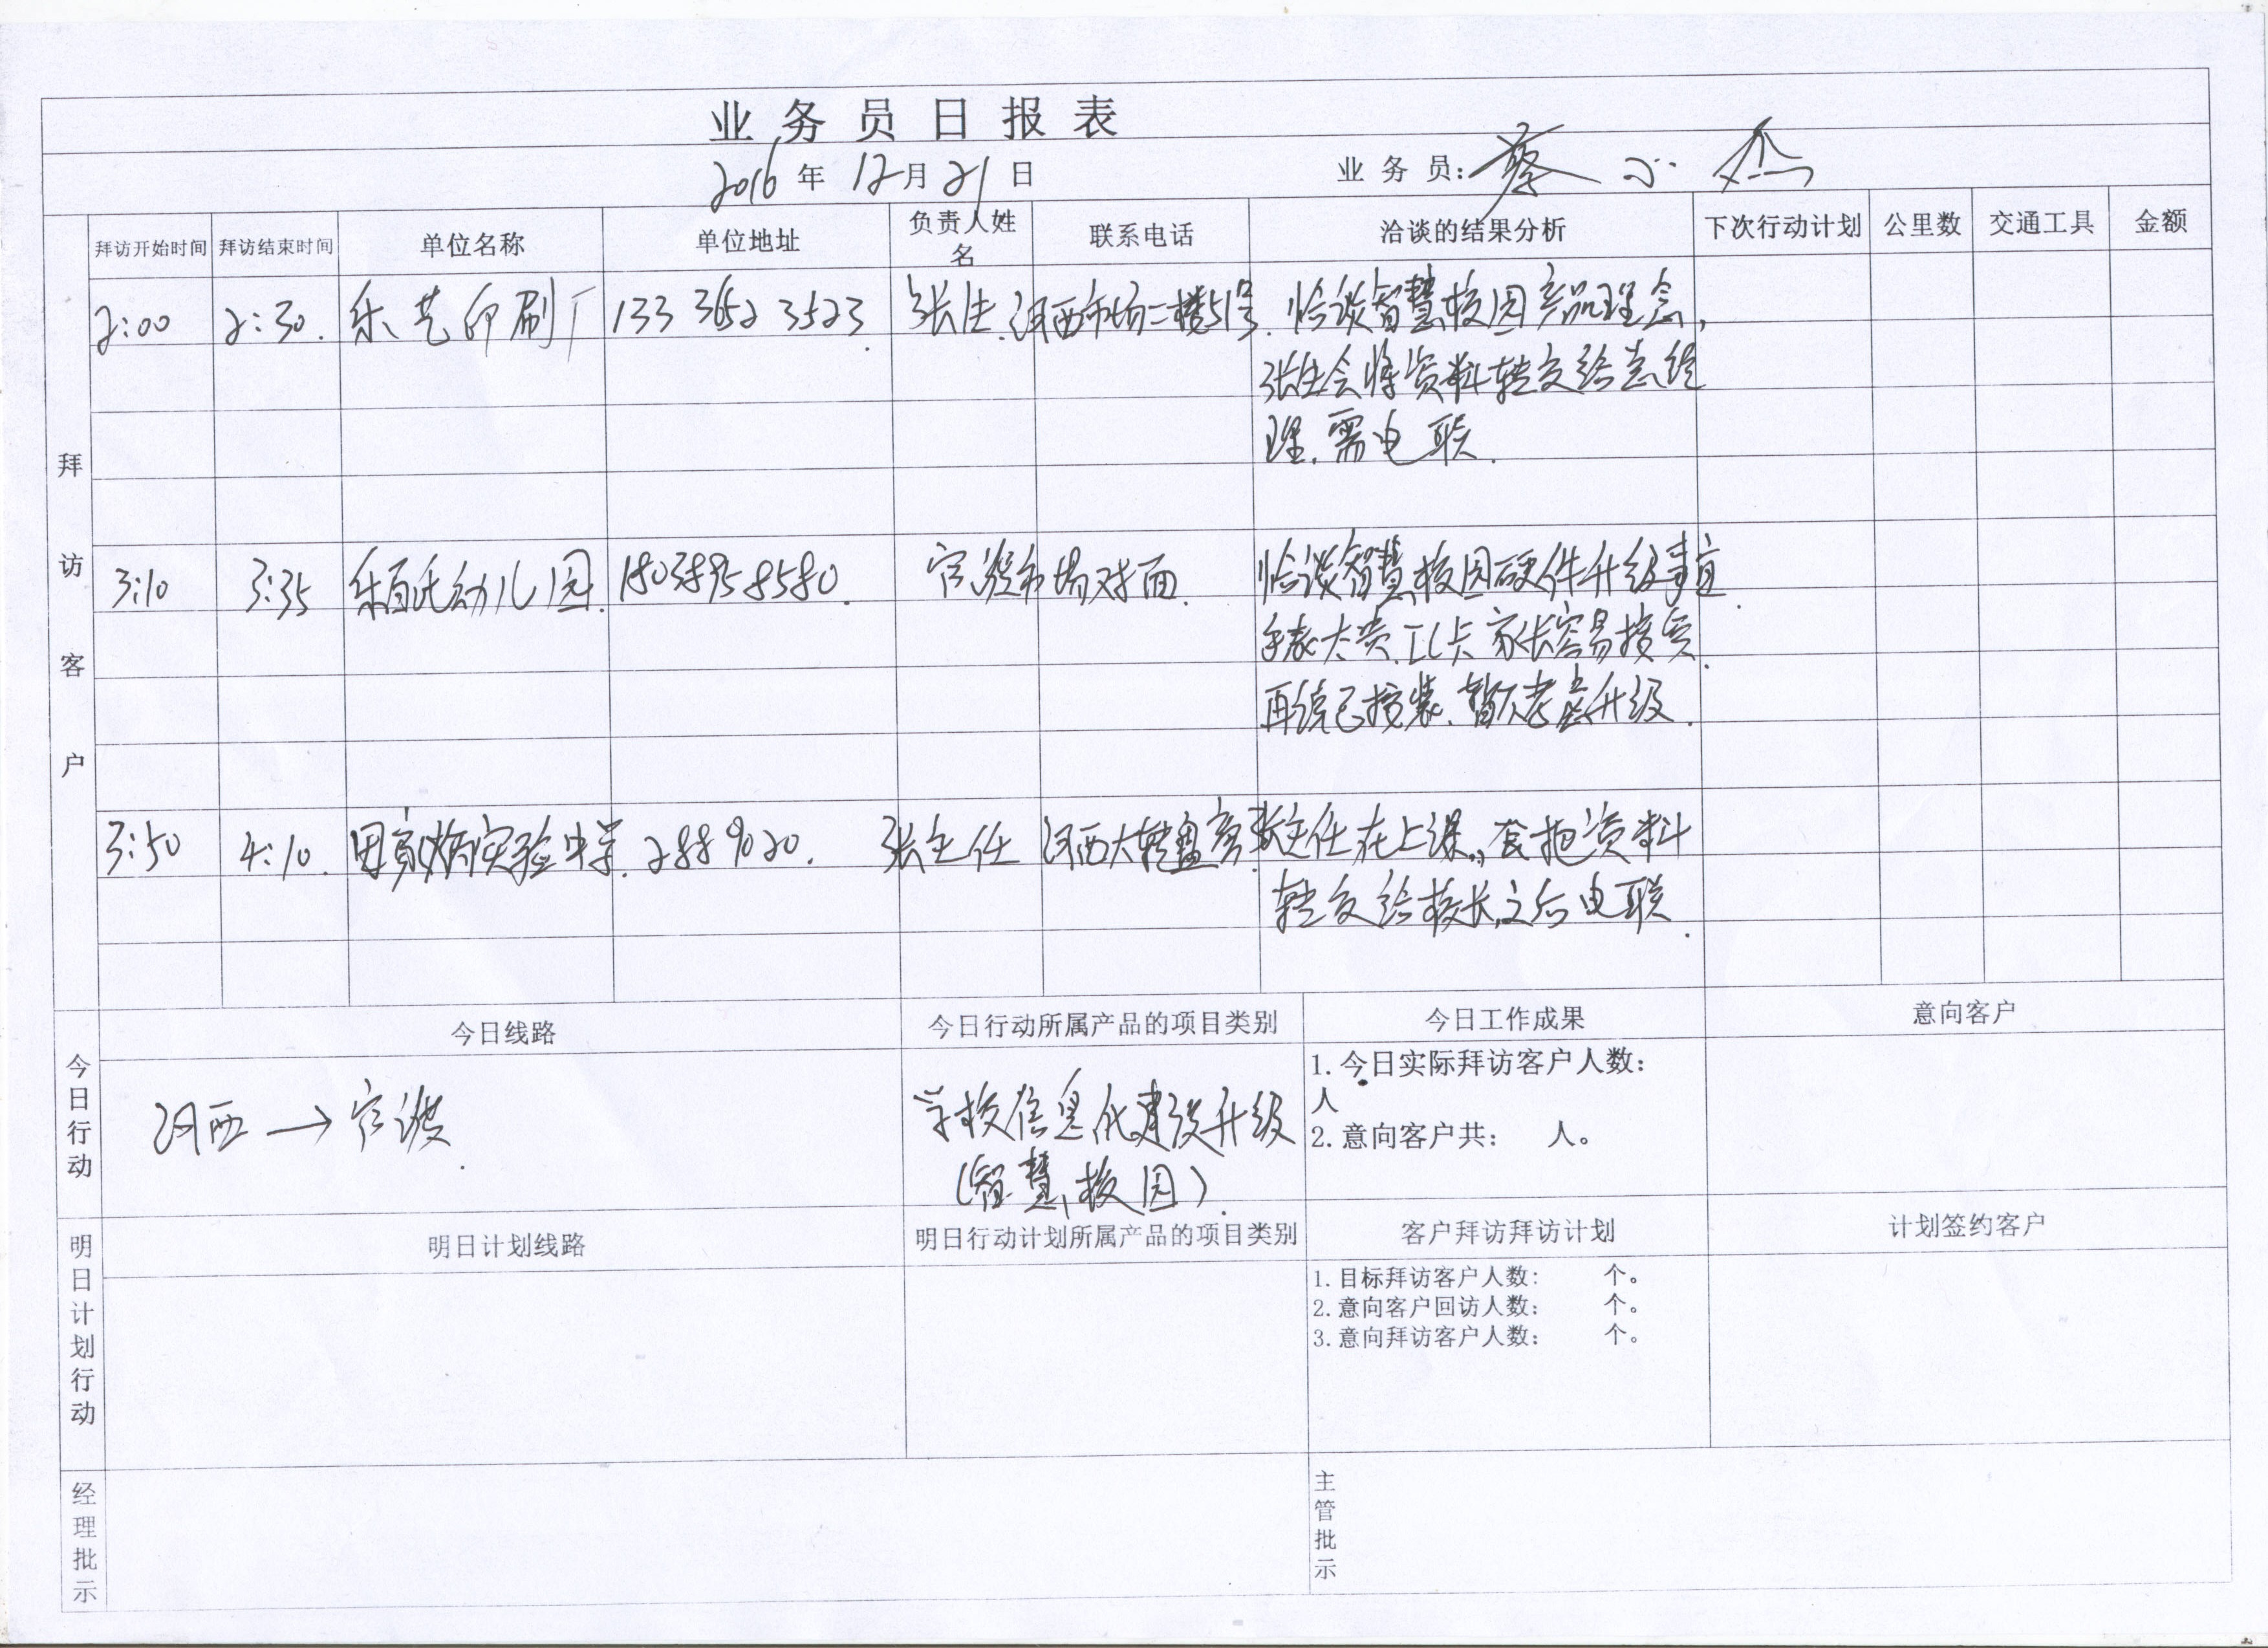 业务员日报表
2016年12月21日 业务员:蔡小杰
拜访开始时间 拜访结束时间 单位名称 单位地址 负责人姓名 联系电话 洽谈的结果分析 下次行动计划 公里数 交通工具 金额
拜访客户
2:00 2:30. 乐艺印刷厂 133 3652 3523. 张生. 河西市场二楼51号. 恰谈智慧校园产品理念,
张生会将资料转交给总经
理.需电联.
3:10 3:35 乐百氏幼儿园. 18038958580. 官渡市场对面. 恰谈智慧校园硬件升级事宜.
手表太贵.IC卡家长容易接受.
再续已按装.暂不考虑升级.
3:50 4:10. 田家炳实验中学. 2889020. 张主任 河西大转盘旁. 张主任在上课,,套把资料
转交给校长,之后电联.
今日行动
今日线路 今日行动所属产品的项目类别 今日工作成果 意向客户
河西→官渡. 学校信息化建设升级
(智慧校园).
1.今日实际拜访客户人数:
人
2.意向客户共: 人。
明日计划行动
明日计划线路 明日行动计划所属产品的项目类别 客户拜访拜访计划 计划签约客户
1.目标拜访客户人数: 个。
2.意向客户回访人数: 个。
3.意向拜访客户人数: 个。
经理批示 主管批示